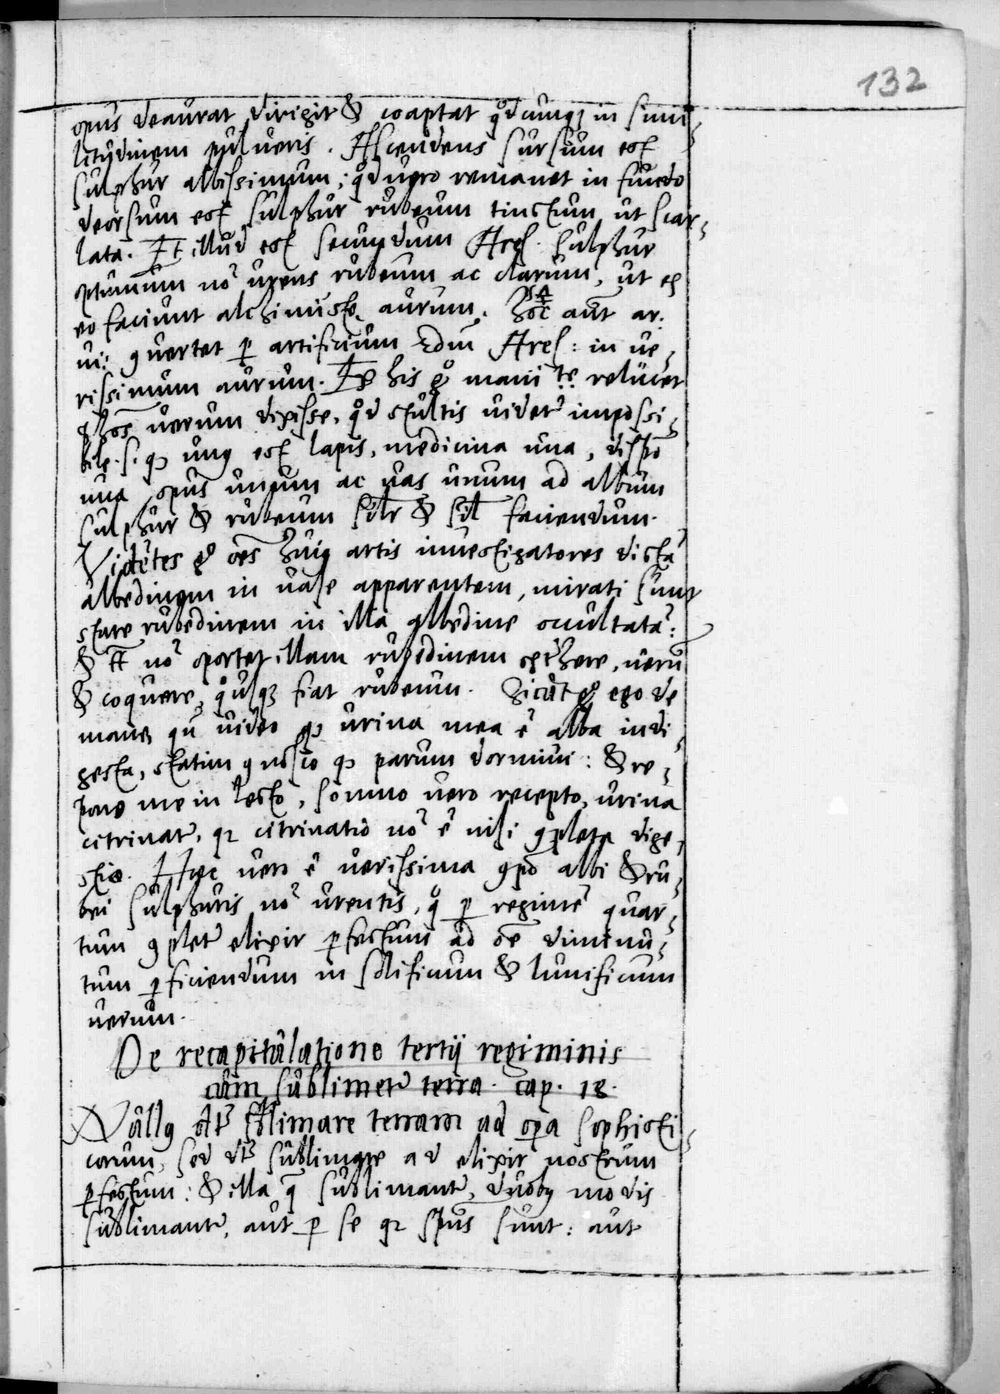 132
opus deaurat dirigit & coaptat qđcunqꝫ in simi-
litudinem pulveris. Ascendens sursum est
sulphur albissimum; qđ vero remanet in fundo
deorsum est sulphur rubeum tinctum ut scar-
lata. Et illud est secundum Arest. sulphur
optimum nō urens rubeum ac clarum, ut ex
eo faciunt alchimistę aurum. hoc aut ar.
vi: ꝯvertet ꝑ artificium Arest: in ve-
rissimum aurum. Ex his mani te relucet
nos verum dixisse, qđ stultis videtʳ impossi-
bile. s. qꝫ unꝰ est lapis, medicina una, dispō
una, opus unum ac vas unum ad album
sulphur & rubeum silr & sil faciendum.
Videntes oēs huiꝰ artis investigatores dictā
albedinem in vase apparentem, mirati sunt
stare rubedinem in illa albedine occultatā:
& nō oportet illam rubedinem verū
& coquere, fiat rubeum. Sicut ego de
mane, qn̄ video qꝫ urina mea ē alba indi-
gesta, statim ꝯnosco qꝫ parum dormivi: & re-
pono me in lecto, somno vero recepto, urina
citrinatʳ, qꝛ citrinatio nō ē nisi ꝯpleta dige-
stio. Hęc vero ē verissima ꝯpō albi & ru-
bei sulphuris nō urentis, ꝑ regimē quar-
tum ꝯpletʳ elixir ꝑfectum ad oē diminu-
tum ꝑficiendum in solificum & lunificum
verum.
De recapitulatione tertij regiminis
cum sublimetʳ terra. cap. 18.
Nullꝰ sublimare terram ad opera sophisti-
corum, sed sublimare ad elixir nostrum
ꝑfectum: & illa q̄ sublimantʳ, duobꝰ modis
sublimantʳ, aut ꝑ se qꝛ spūs sunt: aut